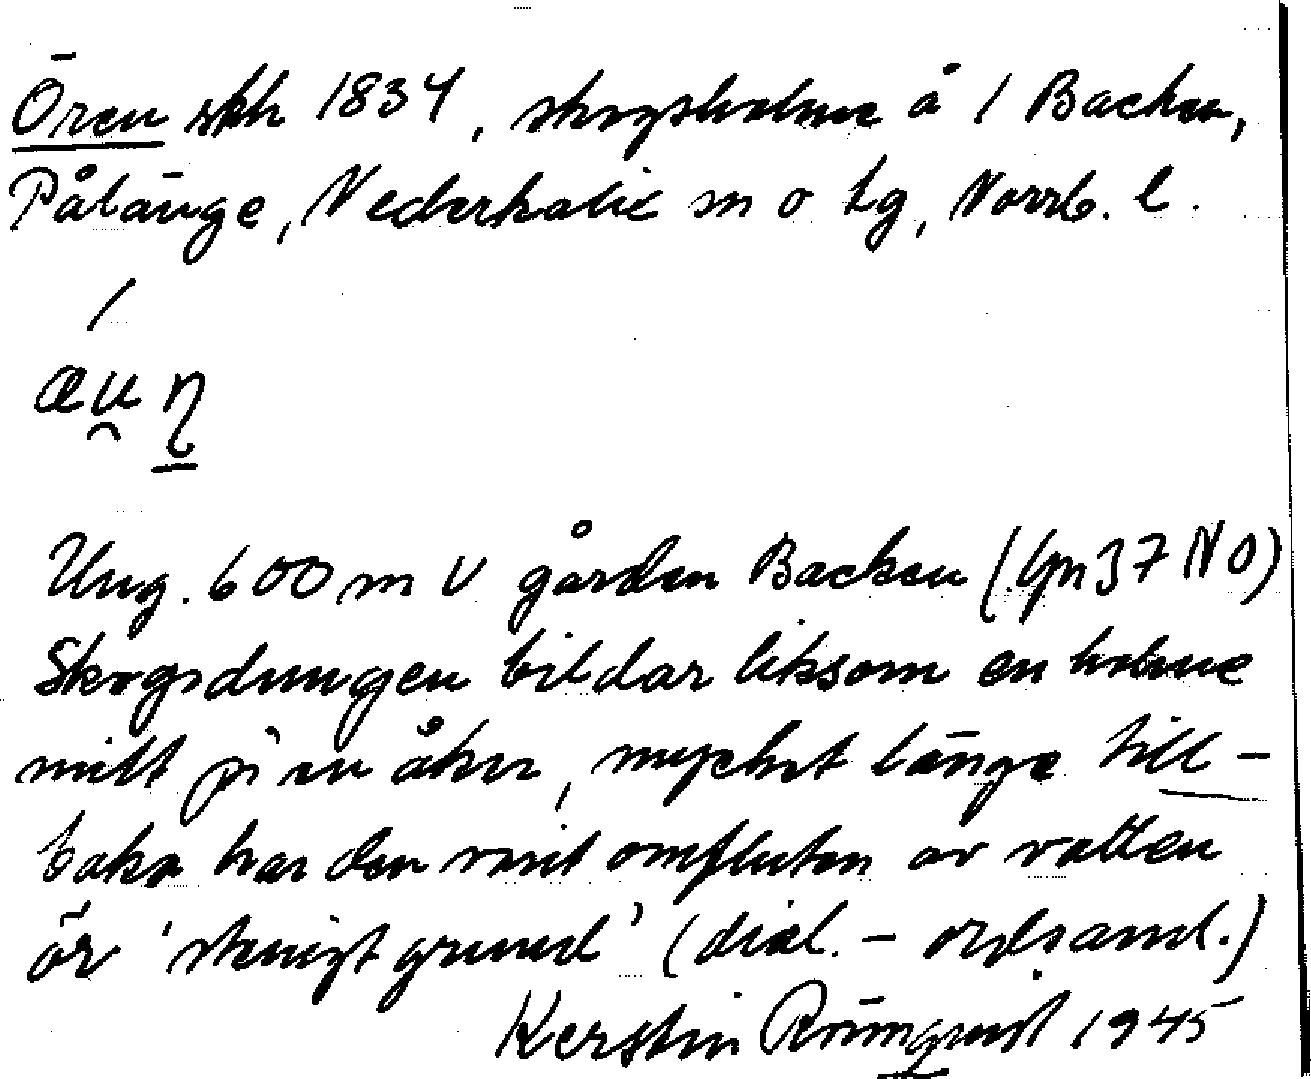 Ören skh 1834, skogsholme å 1 Backen,
Pålänge, Nederkalix sn o tg, Norrb. l.
æu̯n̥
Ung. 600 m V gården Backen (Gpn 37 NO)
Skogsdungen bildar liksom en holme
mitt på en åker, mycket länge till-
baka har den varit omfluten av vatten
ör 'stenigt grund' (dial. - ordsaml.)
Kerstin Rönnquist 1945